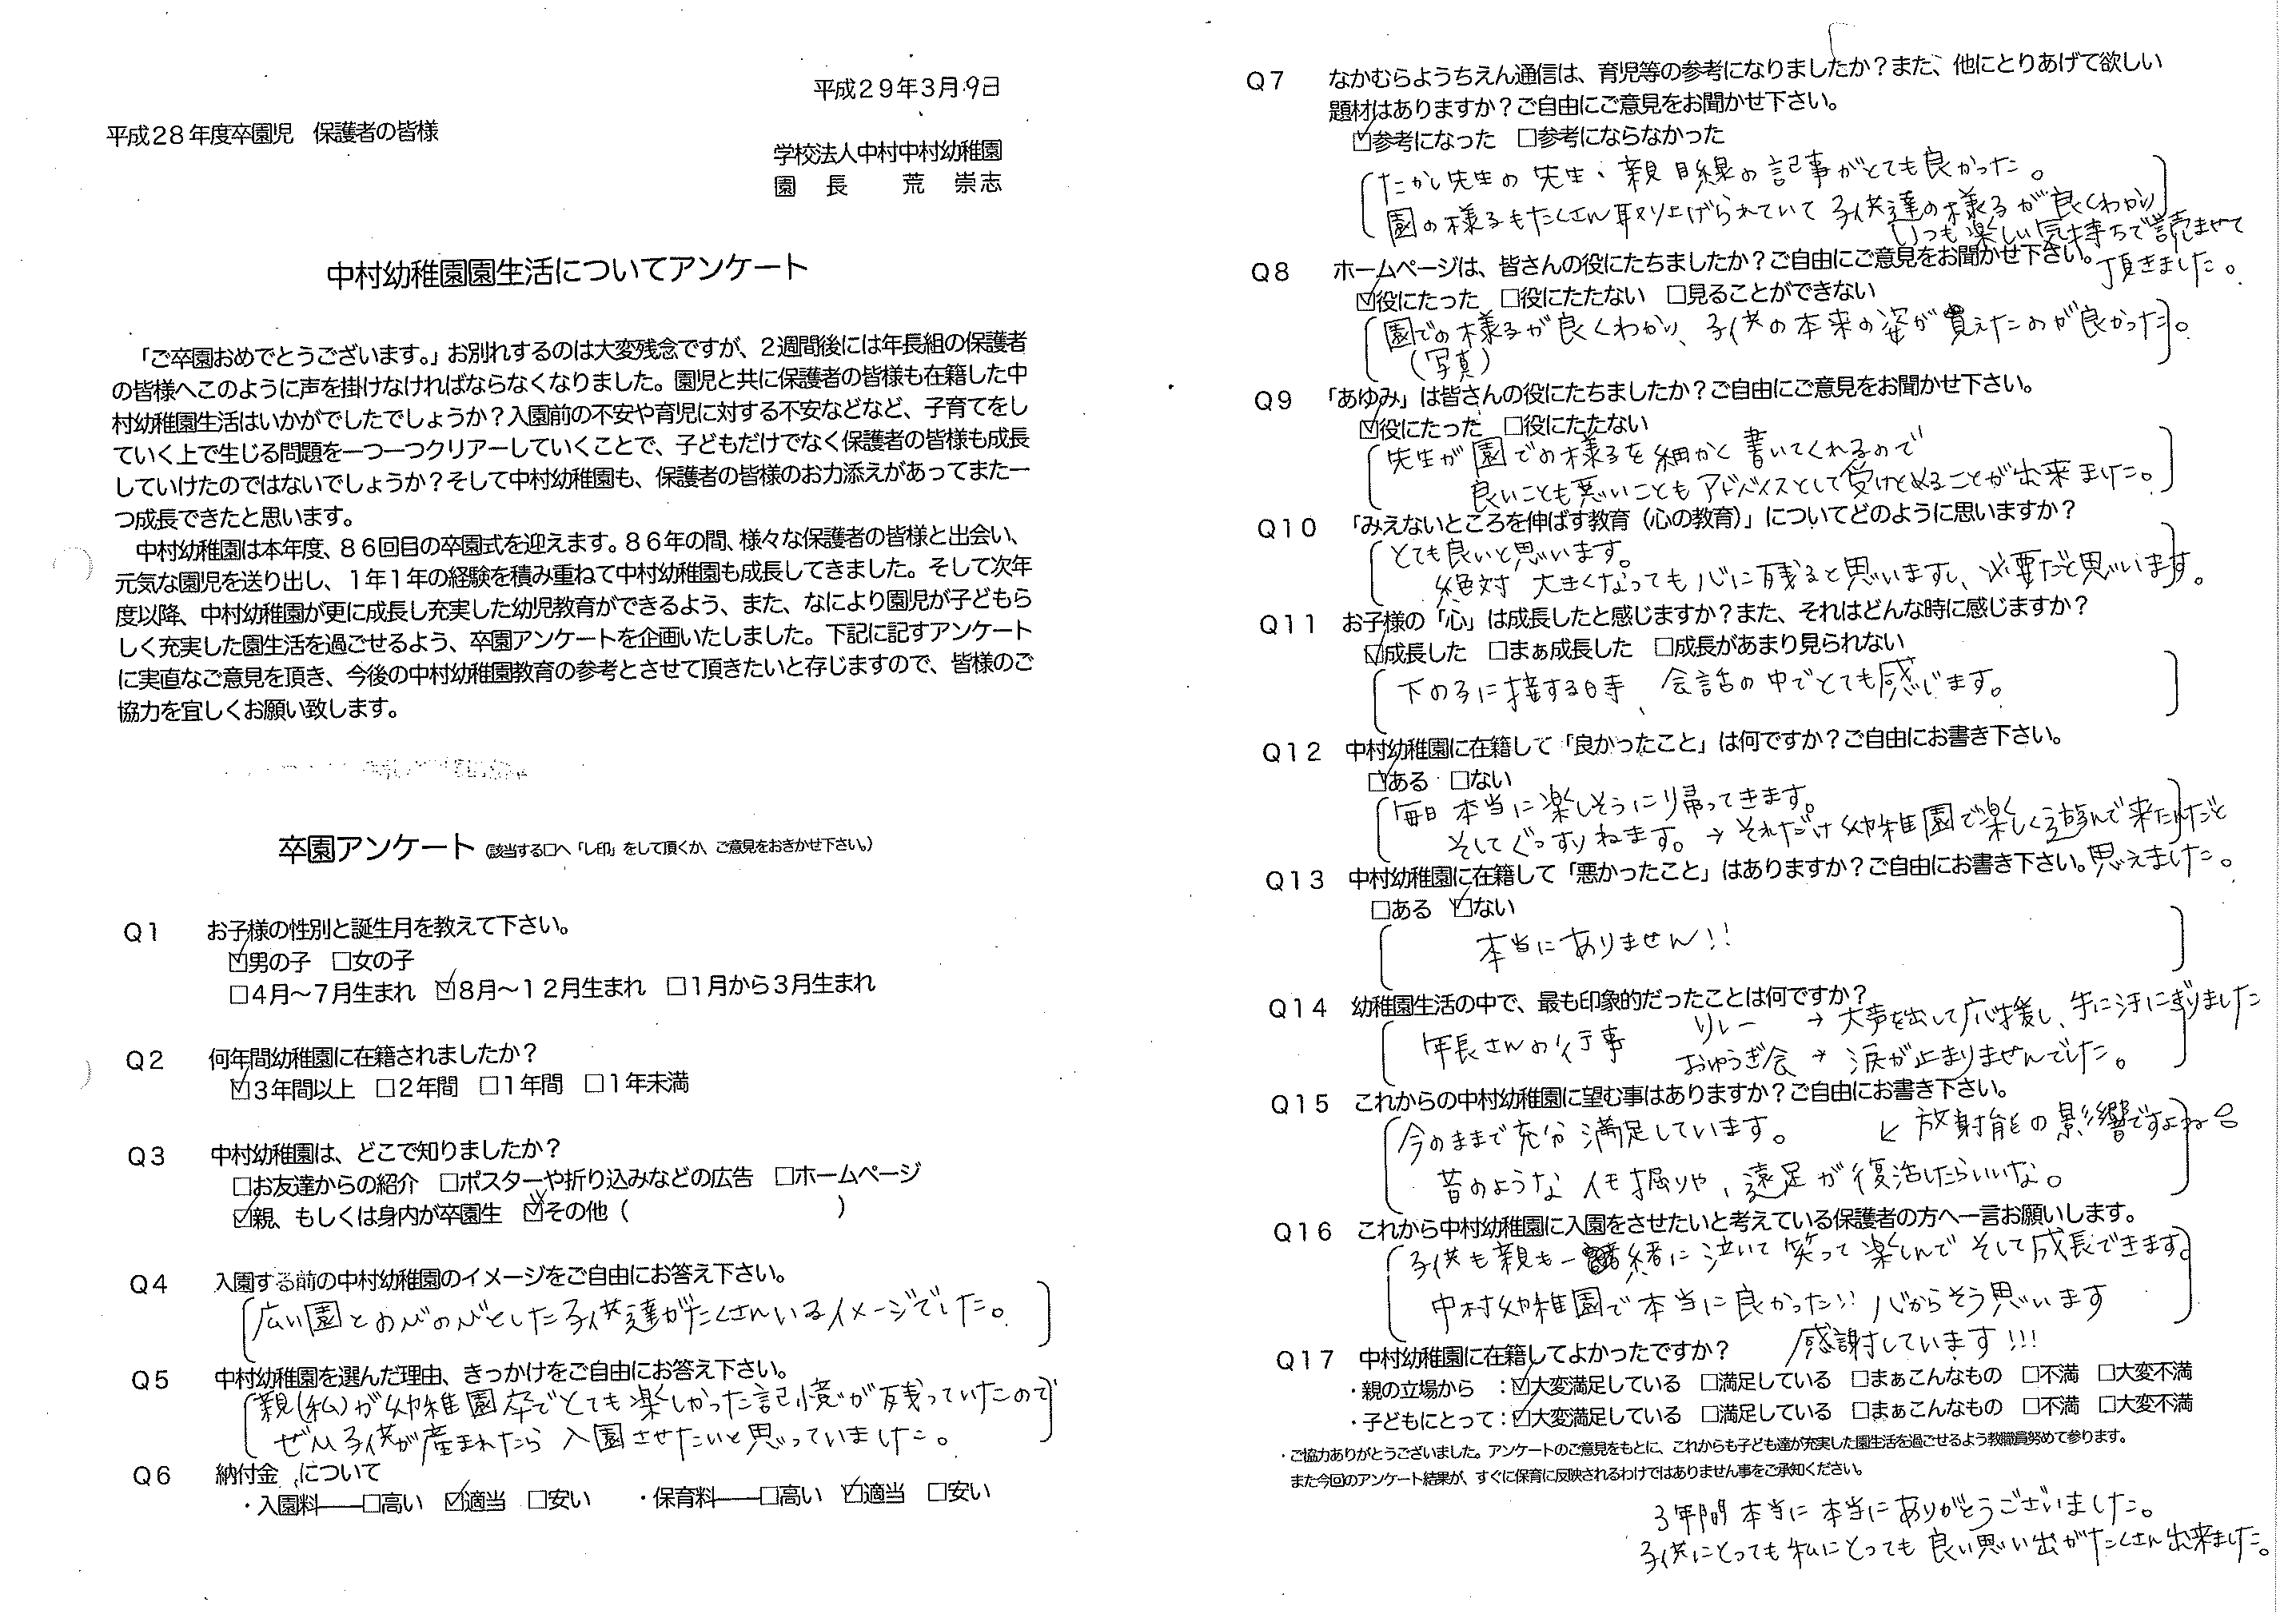 平成29年3月9日
平成28年度卒園児　保護者の皆様
学校法人中村中村幼稚園
園　長　　荒　崇志
中村幼稚園園生活についてアンケート
「ご卒園おめでとうございます。」お別れするのは大変残念ですが、2週間後には年長組の保護者
の皆様へこのように声を掛けなければならなくなりました。園児と共に保護者の皆様も在籍した中
村幼稚園生活はいかがでしたでしょうか？入園前の不安や育児に対する不安などなど、子育てをし
ていく上で生じる問題を一つ一つクリアーしていくことで、子どもだけでなく保護者の皆様も成長
していけたのではないでしょうか？そして中村幼稚園も、保護者の皆様のお力添えがあってまた一
つ成長できたと思います。
中村幼稚園は本年度、86回目の卒園式を迎えます。86年の間、様々な保護者の皆様と出会い、
元気な園児を送り出し、1年1年の経験を積み重ねて中村幼稚園も成長してきました。そして次年
度以降、中村幼稚園が更に成長し充実した幼児教育ができるよう、また、なにより園児が子どもら
しく充実した園生活を過ごせるよう、卒園アンケートを企画いたしました。下記に記すアンケート
に実直なご意見を頂き、今後の中村幼稚園教育の参考とさせて頂きたいと存じますので、皆様のご
協力を宜しくお願い致します。
卒園アンケート（該当する□へ「レ印」をして頂くか、ご意見をおきかせ下さい。）
Q1　お子様の性別と誕生月を教えて下さい。
☑男の子　□女の子
□4月～7月生まれ　☑8月～12月生まれ　□1月から3月生まれ
Q2　何年間幼稚園に在籍されましたか？
☑3年間以上　□2年間　□1年間　□1年未満
Q3　中村幼稚園は、どこで知りましたか？
□お友達からの紹介　□ポスターや折り込みなどの広告　□ホームページ
☑親、もしくは身内が卒園生　☑その他（　　　）
Q4　入園する前の中村幼稚園のイメージをご自由にお答え下さい。
広い園とのびのびとした子供達がたくさんいるイメージでした。
Q5　中村幼稚園を選んだ理由、きっかけをご自由にお答え下さい。
親(私)が幼稚園卒でとても楽しかった記憶が残っていたので
ぜひ子供が産まれたら入園させたいと思っていました。
Q6　納付金　について
・入園料――□高い　☑適当　□安い　・保育料――□高い　☑適当　□安い
Q7　なかむらようちえん通信は、育児等の参考になりましたか？また、他にとりあげて欲しい
題材はありますか？ご自由にご意見をお聞かせ下さい。
☑参考になった　□参考にならなかった
たかし先生の先生、親目線の記事がとても良かった。
園の様子もたくさん取り上げられていて子供達の様子が良くわかり
いつも楽しい気持ちで読ませて
頂きました。
Q8　ホームページは、皆さんの役にたちましたか？ご自由にご意見をお聞かせ下さい。
☑役にたった　□役にたたない　□見ることができない
園での様子が良くわかり、子供の本来の姿が見えたのが良かった。
（写真）
Q9　「あゆみ」は皆さんの役にたちましたか？ご自由にご意見をお聞かせ下さい。
☑役にたった　□役にたたない
先生が園での様子を細かく書いてくれるので
良いことも悪いこともアドバイスとして受けとめることが出来ました。
Q10　「みえないところを伸ばす教育（心の教育）」についてどのように思いますか？
とても良いと思います。
絶対 大きくなっても心に残ると思いますし、必要だと思います。
Q11　お子様の「心」は成長したと感じますか？また、それはどんな時に感じますか？
☑成長した　□まぁ成長した　□成長があまり見られない
下の子に接する時、会話の中でとても感じます。
Q12　中村幼稚園に在籍して「良かったこと」は何ですか？ご自由にお書き下さい。
☑ある　□ない
毎日本当に楽しそうに帰ってきます。
そしてぐっすりねます。→それだけ幼稚園で楽しく遊んで来たんだと
思えました。
Q13　中村幼稚園に在籍して「悪かったこと」はありますか？ご自由にお書き下さい。
□ある　☑ない
本当にありません!!
Q14　幼稚園生活の中で、最も印象的だったことは何ですか？
年長さんの行事　リレー　→大声を出して応援し、手に汗にぎりました
おゆうぎ会→涙が止まりませんでした。
Q15　これからの中村幼稚園に望む事はありますか？ご自由にお書き下さい。
今のままで充分満足しています。　↙放射能の影響ですよね
昔のようなイモ掘りや、遠足が復活したらいいな。
Q16　これから中村幼稚園に入園をさせたいと考えている保護者の方へ一言お願いします。
子供も親も一緒に泣いて笑って楽しんでそして成長できます
中村幼稚園で本当に良かった!! 心からそう思います
感謝しています!!!
Q17　中村幼稚園に在籍してよかったですか？
・親の立場から　：☑大変満足している　□満足している　□まぁこんなもの　□不満　□大変不満
・子どもにとって：☑大変満足している　□満足している　□まぁこんなもの　□不満　□大変不満
・ご協力ありがとうございました。アンケートのご意見をもとに、これからも子ども達が充実した園生活を過ごせるよう教職員努めて参ります。
また今回のアンケート結果が、すぐに保育に反映されるわけではありません事をご承知ください。
3年間本当に本当にありがとうございました。
子供にとっても私にとっても良い思い出がたくさん出来ました。